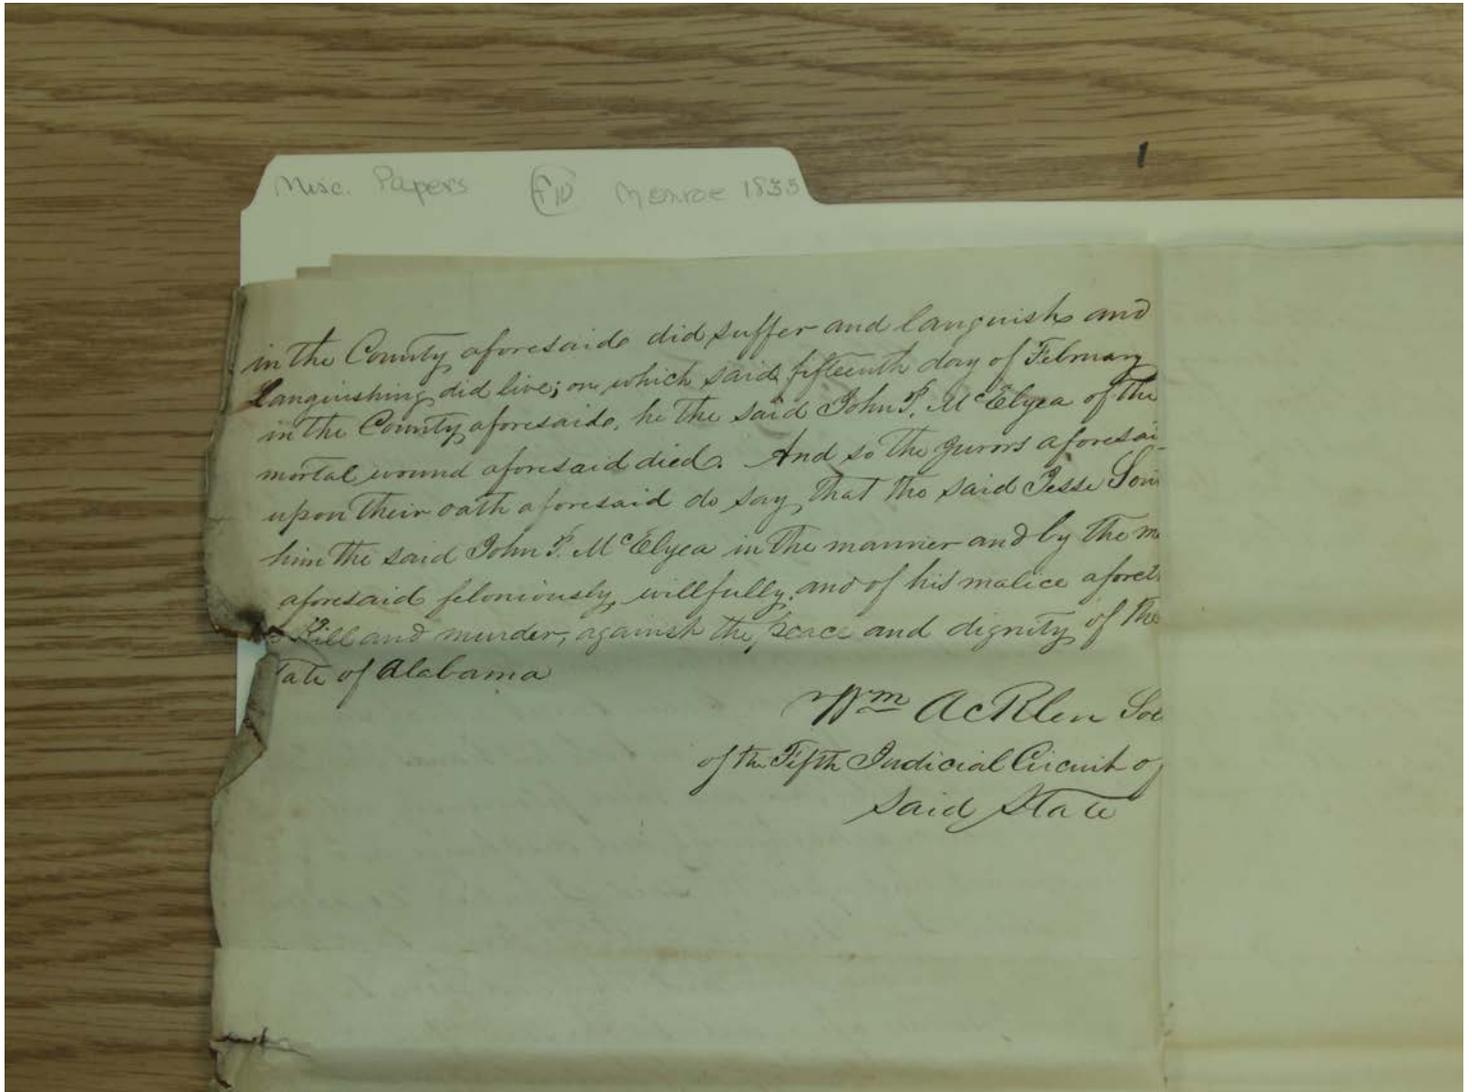 Misc. Papers Monroe 1833
in the County aforesaid did suffer and languish and
Languishing did live; on which said fifteenth day of February
in the County aforesaid, he the said John P. McElyea of the
mortal wound aforesaid died. And so the Jurors aforesai
upon their oath aforesaid do say, that the said Jesse
him the said John P. McElyea in the manner and by the m
aforesaid feloniously, willfully, and of his malice afore
Kill and murder, against the peace and dignity of the
tate of Alabama
Wm Acklen Sol
of the Fifth Judicial Circuit of
said State